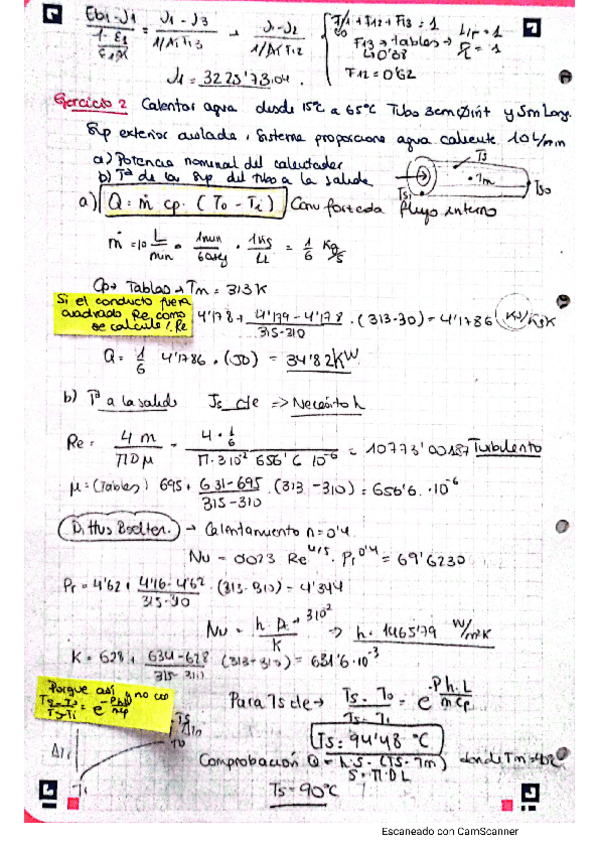 Eb1-J1 / (1-ε1 / ε1·A1) = J1-J3 / 1/A1F13 + J1-J2 / 1/A1F12
F11 + F12 + F13 = 1
F13 → tablas → L/r = 1
0'38
F12 = 0'62
J1 = 32257'3'04.
Ejercicio 2 Calentar agua desde 15ºC a 65ºC Tubo 3cm Ø int y 5m Long.
Sup exterior aislada, Sistema proporciona agua caliente 10L/min
a) Potencia nominal del calentador
b) Tª de la sup del tubo a la salida
Ts
Tm
Tsi
Tso
a) Q = ṁ cp. (To - Ti) Conv forzada flujo interno
ṁ = 10 L/min · 1min/60seg · 1kg/1L = 1/6 kg/s
Cp → Tablas → Tm = 313K
Si el conducto fuera
cuadrado, Re como
se calcula? Re
4'178 + 4'179-4'178 / 315-310 · (313-30) = 4'1786 KJ/KgK
Q = 1/6 4'1786 · (50) = 34'82KW
b) Tª a la salida Ts de => Necesito h
Re = 4 m / ΠDμ = 4·1/6 / Π·3·10⁻² 656'6 10⁻⁶ = 10773'00187 Turbulento
μ = (Tablas) 695 + 631-695 / 315-310 · (313-310) = 656'6 · 10⁻⁶
Dittus Boelter. → Calentamiento n=0'4
Nu = 0023 Re^4/5 · Pr^0'4 = 69'6230
Pr = 4'62 + 4'16-4'62 / 315-310 · (313-310) = 4'344
Nu = h·D / K 3·10⁻² => h = 1465'79 W/m²K
K = 628 + 634-628 / 315-310 (313-310) = 631'6·10⁻³
Porque así y no con
Ts-To / Ts-Ti = e^-PhL/mcp
Para Ts de → Ts-To / Ts-Ti = e^-P·h·L/ṁcp
Ts
ΔTo
To
ΔTi
Ti
Ts = 94'48 ºC
Comprobación Q = h·S·(Ts-Tm) donde Tm=40ºC
S = Π·D·L
Ts = 90ºC
Escaneado con CamScanner